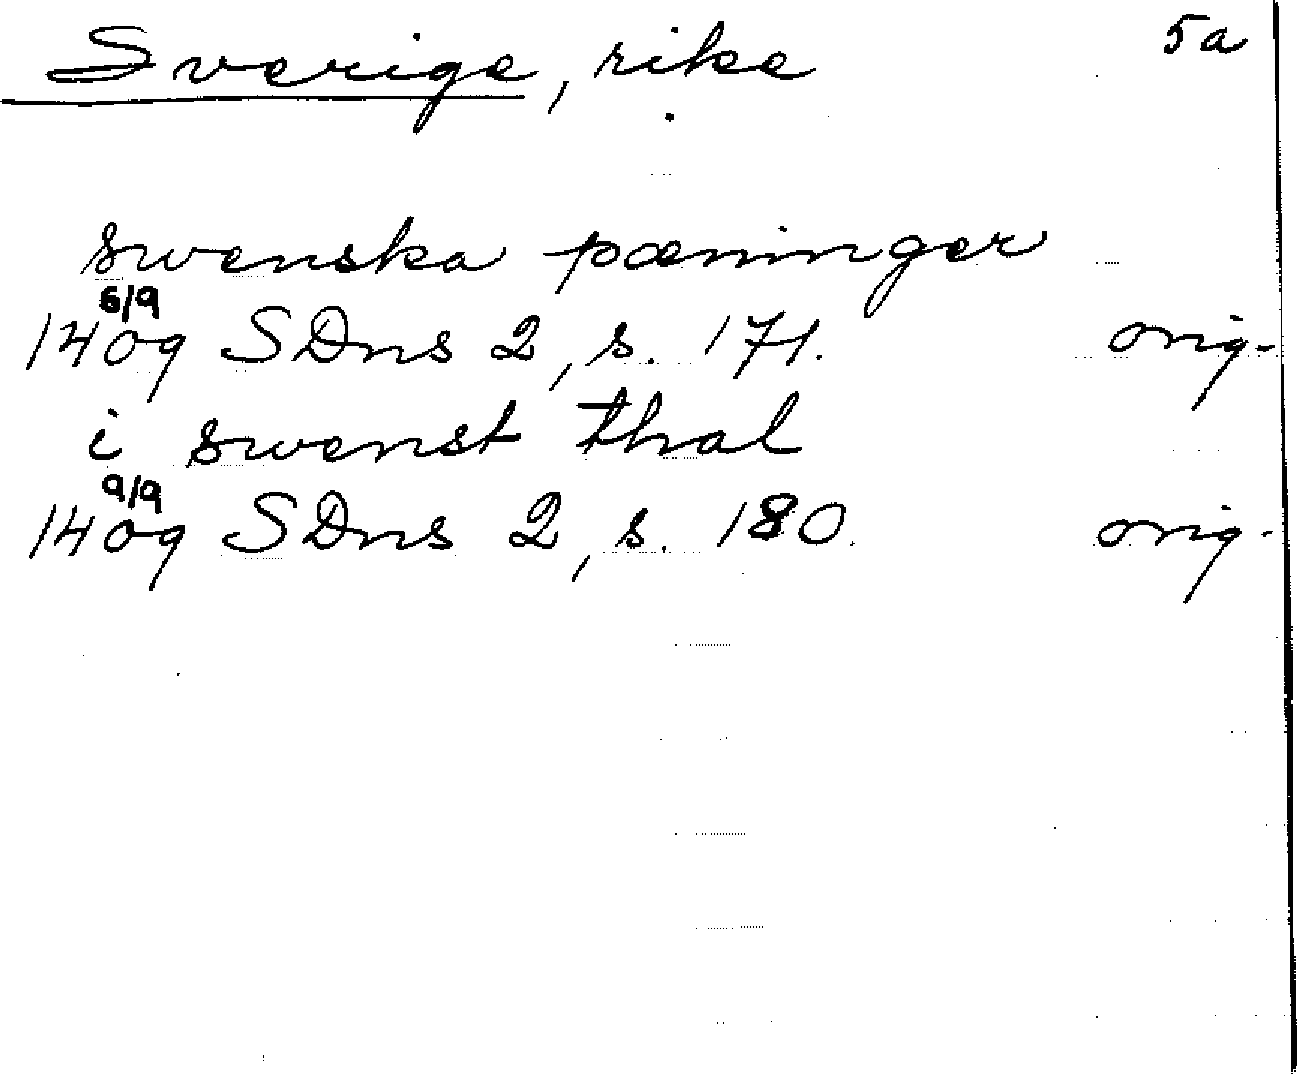 Sverige, rike 5a
swenska pæninger
6/9
1409 SDns 2, s. 171. orig.
i swenst thal
9/9
1409 SDns 2, s. 180. orig.